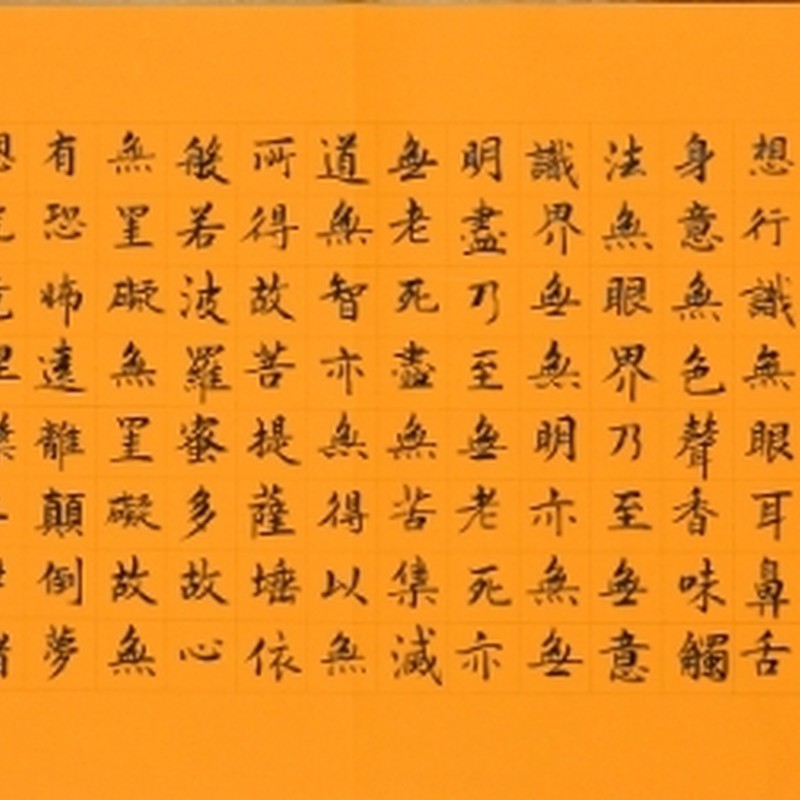 想行識無眼耳鼻舌
身意無色聲香味觸
法無眼界乃至無意
識界無無明亦無無
明盡乃至無老死亦
無老死盡無苦集滅
道無智亦無得以無
所得故苦提薩埵依
般若波羅蜜多故心
無罣礙無罣礙故無
有恐怖遠離顛倒夢